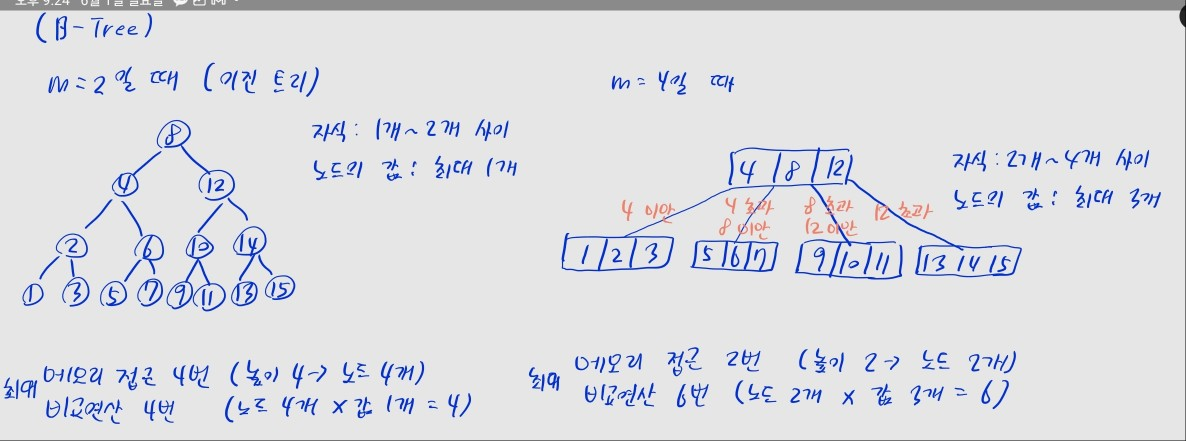 오후 9:24 6월 1일 일요일
(B-Tree)
m=2일 때 (이진 트리)
8
4 12
2 6 10 14
1 3 5 7 9 11 13 15
자식: 1개~2개 사이
노드의 값: 최대 1개
최악 메모리 접근 4번 (높이 4→ 노드 4개)
비교연산 4번 (노드 4개 x 값 1개 = 4)
m=4일 때
4 8 12
4 미만
4 초과
8 미만
8 초과
12 미만
12 초과
1 2 3
5 6 7
9 10 11
13 14 15
자식: 2개~4개 사이
노드의 값: 최대 3개
최악 메모리 접근 2번 (높이 2→ 노드 2개)
비교연산 6번 (노드 2개 x 값 3개 = 6)